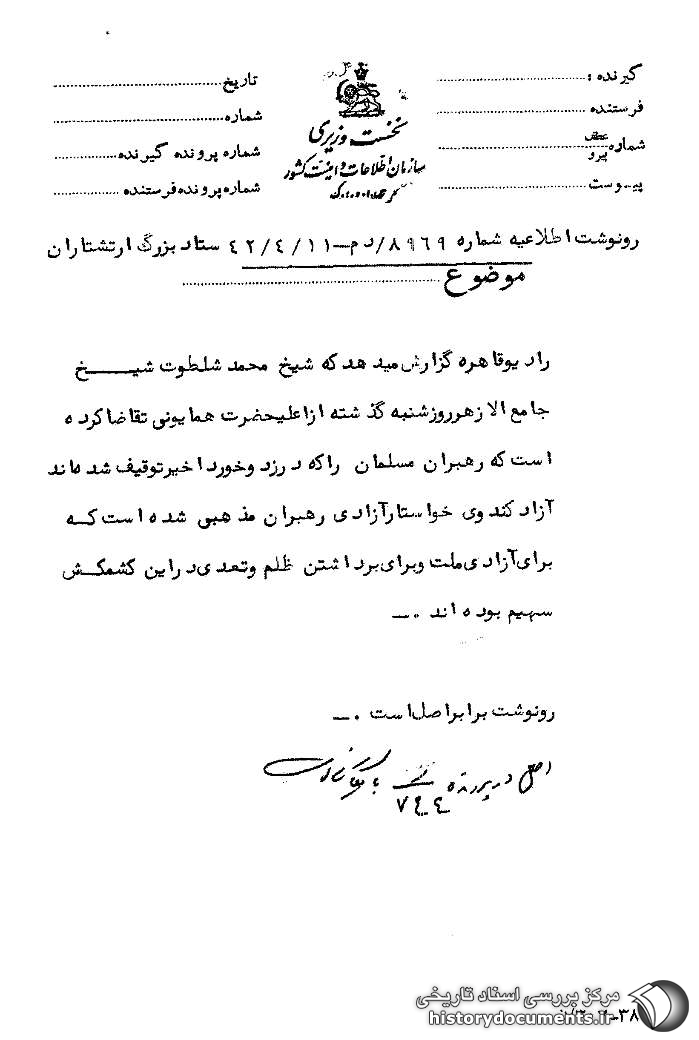 گیرنده :
فرستنده
شماره عطف پیرو
پیوست
نخست وزیری
سازمان اطلاعات و امنیت کشور
س.ا.و.ا.ک
تاریخ
شماره
شماره پرونده گیرنده
شماره پرونده فرستنده
رونوشت اطلاعیه شماره ۸۹۶۹/دم-۴۲/۴/۱۱ ستاد بزرگ ارتشتاران
موضوع
رادیو قاهره گزارش میدهد که شیخ محمد شلطوت شیخ
جامع الازهر روز شنبه گذشته از اعلیحضرت همایونی تقاضا کرده
است که رهبران مسلمان را که در زد و خورد اخیر توقیف شده اند
آزاد کند وی خواستار آزادی رهبران مذهبی شده است که
برای آزادی ملت و برای برداشتن ظلم و تعدی در این کشمکش
سهیم بوده اند .-
رونوشت برابر اصل است .-
اصل در پرونده
مرکز بررسی اسناد تاریخی
historydocuments.ir